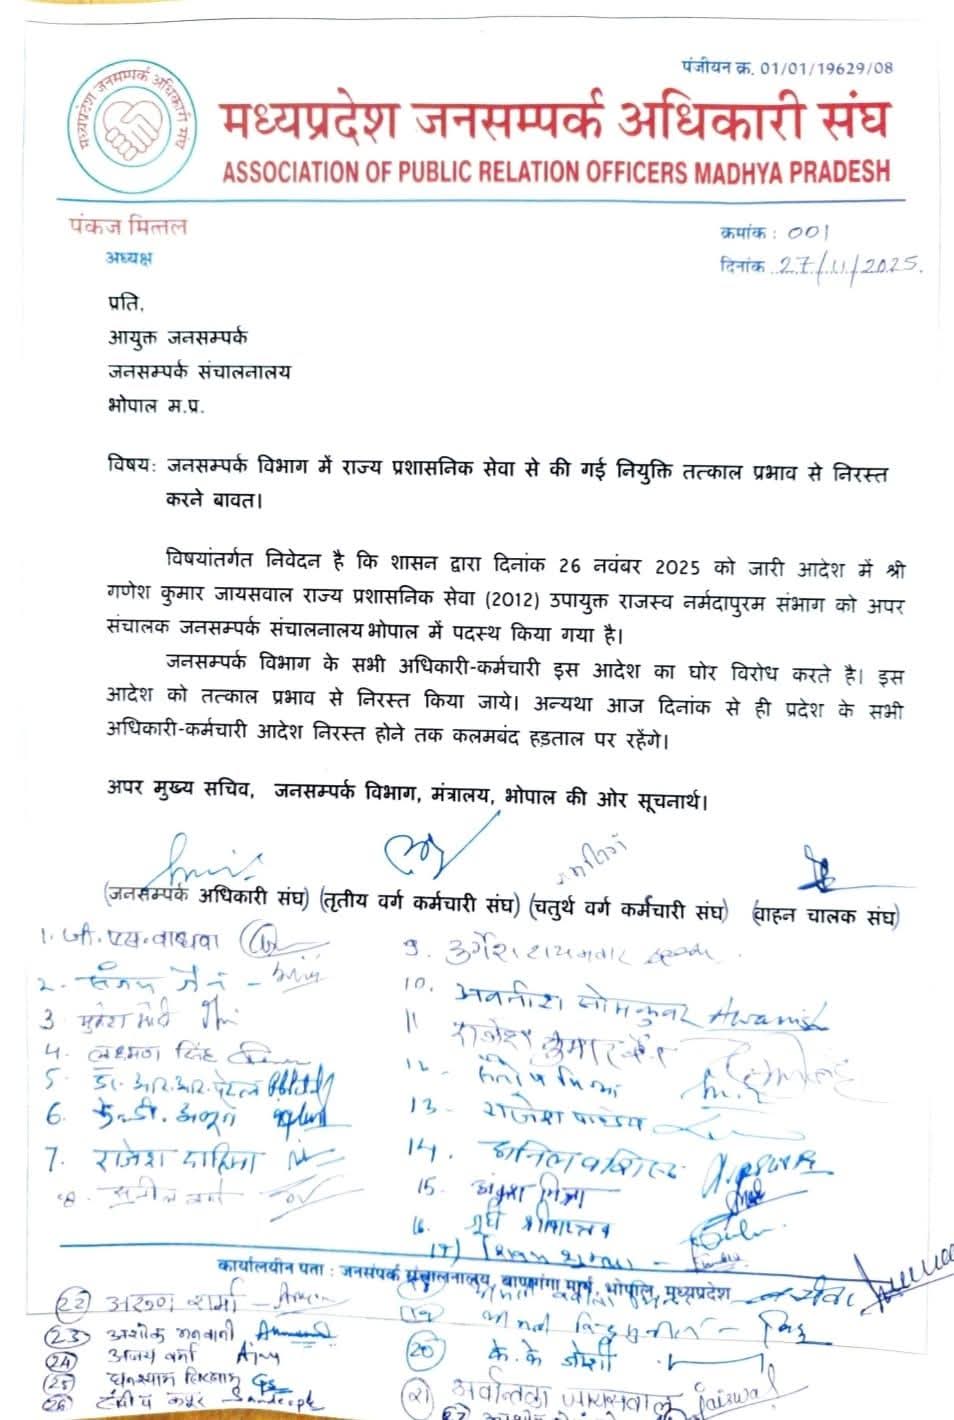 पंजीयन क्र. 01/01/19629/08
मध्यप्रदेश जनसम्पर्क अधिकारी संघ
मध्यप्रदेश जनसम्पर्क अधिकारी संघ
ASSOCIATION OF PUBLIC RELATION OFFICERS MADHYA PRADESH
पंकज मित्तल
अध्यक्ष
क्रमांक : 001
दिनांक 27/11/2025.
प्रति,
आयुक्त जनसम्पर्क
जनसम्पर्क संचालनालय
भोपाल म.प्र.
विषय: जनसम्पर्क विभाग में राज्य प्रशासनिक सेवा से की गई नियुक्ति तत्काल प्रभाव से निरस्त
करने बावत।
विषयांतर्गत निवेदन है कि शासन द्वारा दिनांक 26 नवंबर 2025 को जारी आदेश में श्री
गणेश कुमार जायसवाल राज्य प्रशासनिक सेवा (2012) उपायुक्त राजस्व नर्मदापुरम संभाग को अपर
संचालक जनसम्पर्क संचालनालय भोपाल में पदस्थ किया गया है।
जनसम्पर्क विभाग के सभी अधिकारी-कर्मचारी इस आदेश का घोर विरोध करते है। इस
आदेश को तत्काल प्रभाव से निरस्त किया जाये। अन्यथा आज दिनांक से ही प्रदेश के सभी
अधिकारी-कर्मचारी आदेश निरस्त होने तक कलमबंद हड़ताल पर रहेंगे।
अपर मुख्य सचिव, जनसम्पर्क विभाग, मंत्रालय, भोपाल की ओर सूचनार्थ।
(जनसम्पर्क अधिकारी संघ) (तृतीय वर्ग कर्मचारी संघ) (चतुर्थ वर्ग कर्मचारी संघ) (वाहन चालक संघ)
1. जी. एस. वाधवा
2. संजय जैन
3. मुकेश मोदी
4. लक्ष्मण सिंह
5. डॉ. आर. आर. पटेल
6.
7. राजेश दाहिमा
8. सुनील वर्मा
9.
10. अवनीश सोमकुवर Awanish
11 राजेश कुमार बैन
12. संतोष मिश्रा
13. राजेश पाण्डेय
14. अनिल वशिष्ठ
15. अंकुश मिश्रा
16.
17)
कार्यालयीन पता : जनसंपर्क संचालनालय, बाणगंगा मार्ग, भोपाल, मध्यप्रदेश
(19
(20) के. के. जोशी
(21) अवन्तिका जायसवाल Jaiswal
(22) अरुण शर्मा
(23) अशोक मनवानी
(24) अजय वर्मा Ajay
(25) घनश्याम सिरसाम
(26) संदीप कपूर Sandeep